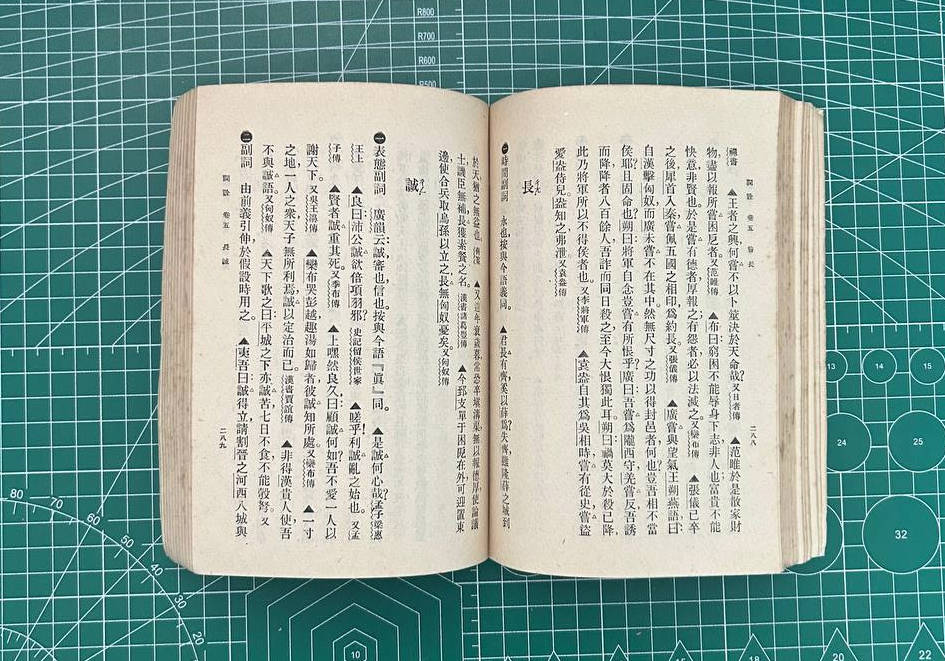 詞詮 卷五 嘗長
二八八
禪書 ▲王者之興何嘗不以卜筮決於天命哉?又日者傳 ▲范睢於是散家財
物盡以報所嘗困戹者。又范睢傳 ▲布曰:窮困不能辱身下志,非人也;富貴不能
快意非賢也。於是嘗有德者厚報之,有怨者必以法滅之。又欒布傳 ▲張儀已卒
之後,犀首入秦,嘗佩五國之相印,爲約長。又張儀傳 ▲廣嘗與望氣王朔燕語曰:
自漢擊匈奴,而廣未嘗不在其中。然無尺寸之功以得封邑者,何也?豈吾相不當
侯耶?且固命也?朔曰:將軍自念豈嘗有所恨乎?廣曰:吾嘗爲隴西守,羌嘗反,吾誘
而降,降者八百餘人,吾詐而同日殺之,至今大恨獨此耳。朔曰:禍莫大於殺已降,
此乃將軍所以不得侯者也。又李將軍傳 ▲袁盎自其爲吳相時,嘗有從史嘗盜
愛盎侍兒,盎知之,弗泄。又袁盎傳
長
㊀時間副詞 永也。按與今語義同。 ▲君長有齊,奚以薛爲?失齊,雖隆薛之城到
於天,猶之無益也。 ▲又迫年衰歲暮,常恐卒塡溝渠,無以報德厚,使論議
士譏臣無補,長獲素餐之名。漢書諸葛豐傳 ▲今郅支單于困阸在外,可迎置東
邊,使合兵取烏孫以立之,長無匈奴憂矣。又匈奴傳
誠
㊀表態副詞 廣韻云:誠,審也,信也。按與今語『眞』同。 ▲是誠何心哉?孟子梁惠
王上 ▲良曰:沛公誠欲倍項羽邪?史記留侯世家 ▲嗟乎!利誠亂之始也。又孟
子傳 ▲賢者誠重其死。又季布傳 ▲上嘿然良久曰:顧誠何如,吾不愛一人以
謝天下。又吳王濞傳 ▲欒布哭彭越,趣湯如歸者,彼誠知所處。又欒布傳 ▲一寸
之地,一人之衆,天子無所利焉,誠以定治而已。漢書賈誼傳 ▲非得漢貴人使,吾
不與誠語。又匈奴傳 ▲天下歌之曰:平城之下亦誠苦,七日不食,不能彀弩。又
㊁副詞 由前義引伸,於假設時用之。 ▲夷吾曰:誠得立,請割晉之河西八城與
詞詮 卷五 長誠
二八九